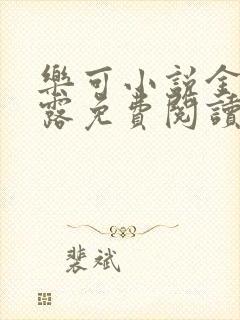 樂可小說金
露免費閱讀
裴斌